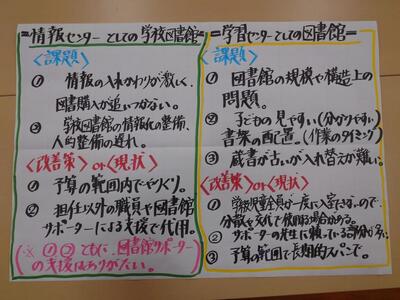 =情報センターとしての学校図書館=
〈課題〉
① 情報の入れかわりが激しく、
図書購入が追いつかない。
② 学校図書館の情報化の整備、
人的整備の遅れ。
〈改善策〉or〈現状〉
① 予算の範囲内でやりくり。
② 担任以外の職員や図書館
サポーターによる支援で代用。
(※ ①②ともに、図書館サポーター
の支援はありがたい。)
=学習センターとしての図書館=
〈課題〉
① 図書館の規模や構造上の
問題。
② 子どもの見やすい(分かりやすい)
書架の配置。(作業のタイミング)
③ 蔵書が古いが入れ替えが難しい。
〈改善策〉or〈現状〉
① 学校児童全員が一度に入室できないので、
分散や交代で使用する場合がある。
② サポーターの先生に頼っている部分が多い。
③ 予算の範囲で長期的スパンで。